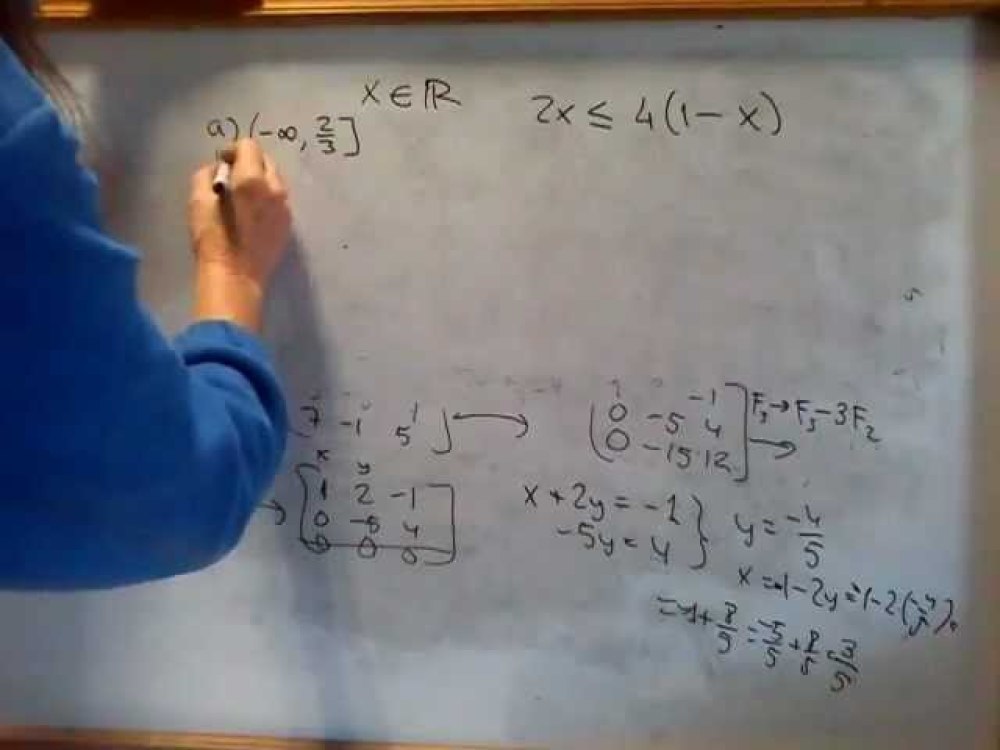 x ∈ ℝ
2x ≤ 4(1 - x)
a) (-∞, 2/3]
7 -1 1
5
-1
0 -5 4
0 -15 12
F₃→F₃-3F₂
x y
1 2 -1
0 -5 4
0 0 0
x + 2y = -1
-5y = 4
y = -4/5
x = -1 - 2y = -1 - 2(-4/5) =
= -1 + 8/5 = -5/5 + 8/5 = 3/5